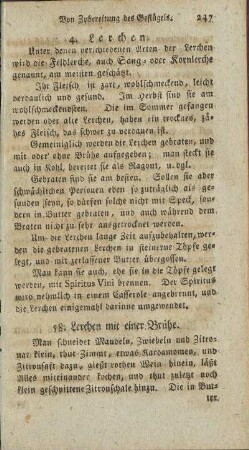 Von Zubereitung des Geflügels. 247
4. Lerchen.
Unter denen verschiedenen Arten der Lerchen
wird die Feldlerche, auch Sang- oder Kornlerche
genannt, am meisten geschätzt.
Ihr Fleisch ist zart, wohlschmeckend, leicht
verdaulich und gesund. Im Herbst sind sie am
wohlschmeckendsten. Die im Sommer gefangen
werden oder alte Lerchen, haben ein trocknes, zä-
hes Fleisch, das schwer zu verdauen ist.
Gemeiniglich werden die Lerchen gebraten, und
mit oder ohne Brühe aufgegeben; man steckt sie
auch in Kohl, bereitet sie als Ragout, u. dgl.
Gebraten sind sie am besten. Sollen sie aber
schwächlichen Personen eben so zuträglich als ge-
sunden seyn, so dürfen solche nicht mit Speck, son-
dern in Butter gebraten, und auch während dem
Braten nicht zu sehr ausgetrocknet werden.
Um die Lerchen lange Zeit aufzubehalten, wer-
den die gebratenen Lerchen in steinerne Töpfe gelegt,
und mit zerlassener Butter übergossen.
Man kann sie auch, ehe sie in die Töpfe gelegt
werden, mit Spiritus Vini brennen. Der Spiritus
wird nehmlich in einem Casserole angebrannt, und
die Lerchen einigemahl darinne umgewendet.
18. Lerchen mit einer Brühe.
Man schneidet Mandeln, Zwiebeln und Zitro-
nat klein, thut Zimmt, etwas Kardamomen, und
Zitronsaft dazu, gießt rothen Wein hinein, läßt
Alles miteinander kochen, und thut zuletzt noch
klein geschnittene Zitronschale hinzu. Die in But-
ter